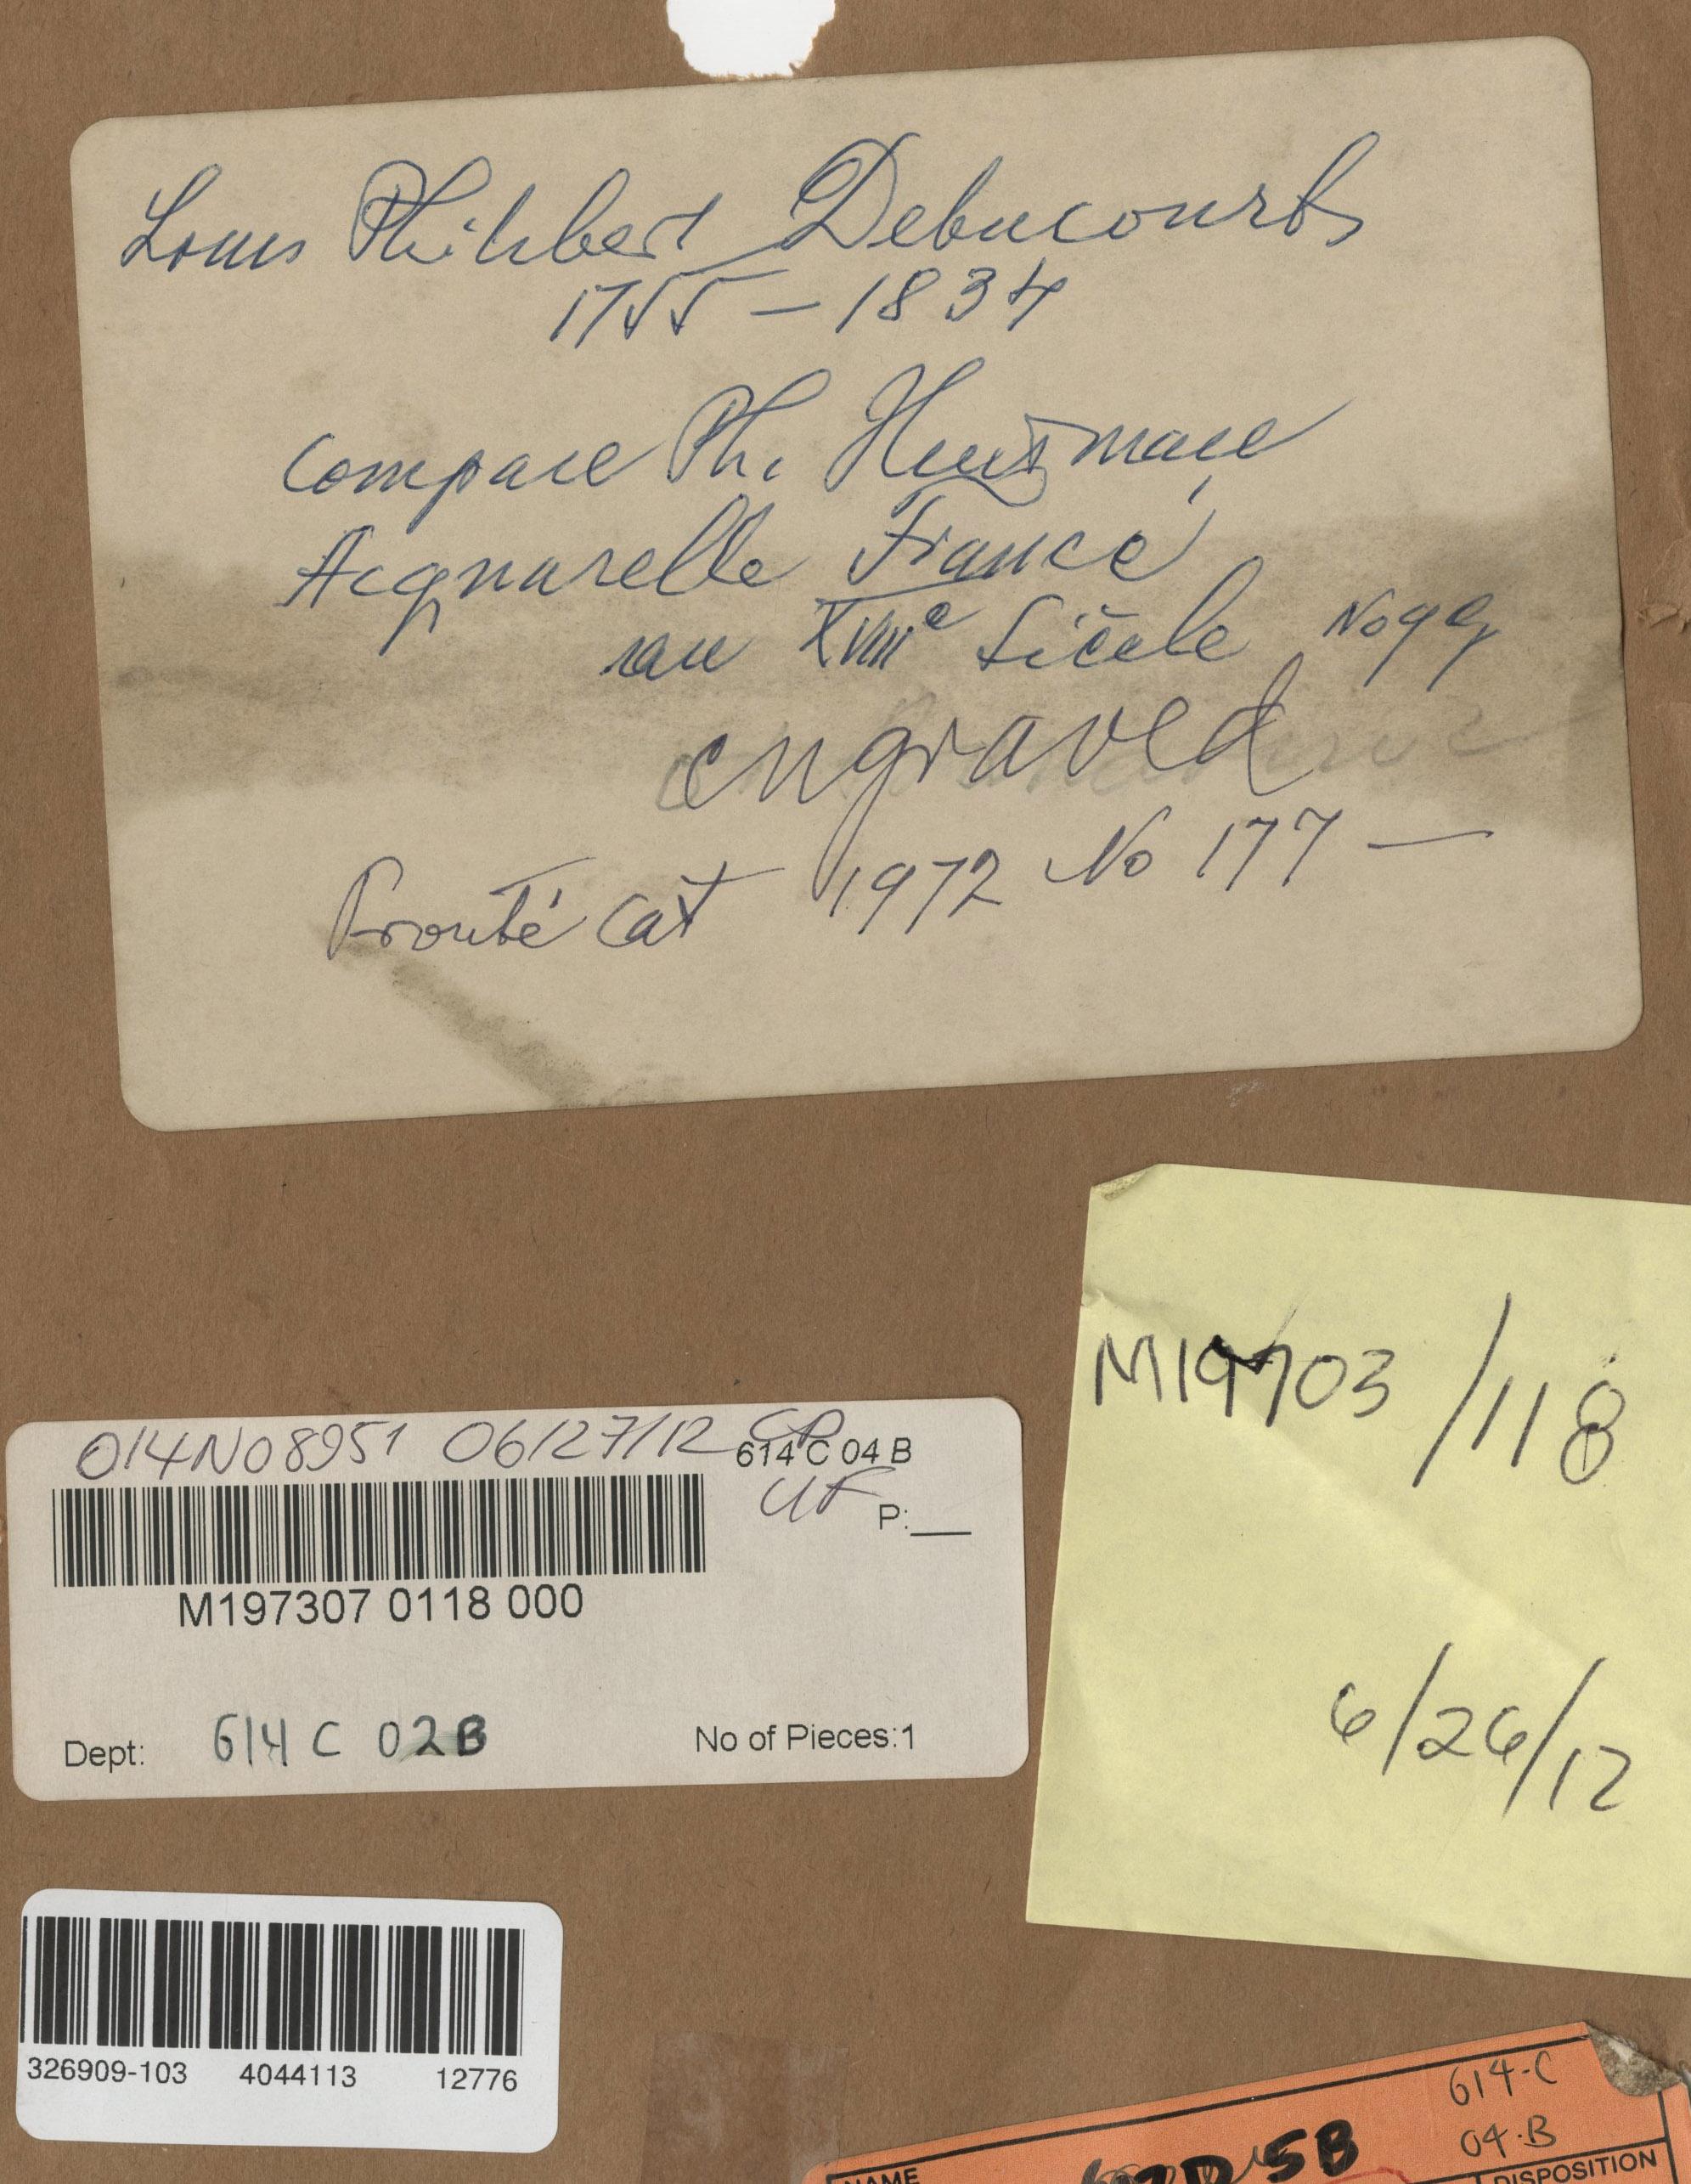 Louis Philibert Debucourts
1755 – 1834
Compare Ph.
Acquarelle France
au XVIIIe Siècle No 99
engraved
Prouté Cat 1972 No 177 —
M19703 /118
6/26/12
014N08951 06/27/12 CP
614 C 04 B
UF
P:___
M197307 0118 000
Dept: 614 C 02B
No of Pieces:1
326909-103 4044113 12776
614-C
04-B
5B
NAME
DISPOSITION